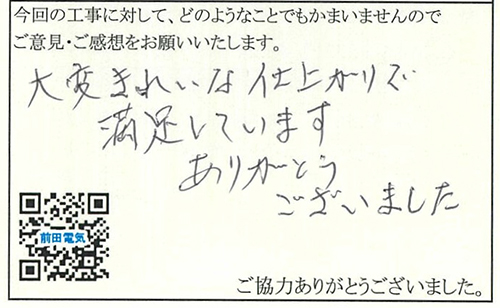 今回の工事に対して、どのようなことでもかまいませんので
ご意見・ご感想をお願いいたします。
大変きれいな仕上がりで
満足しています
ありがとう
ございました
前田電気
ご協力ありがとうございました。